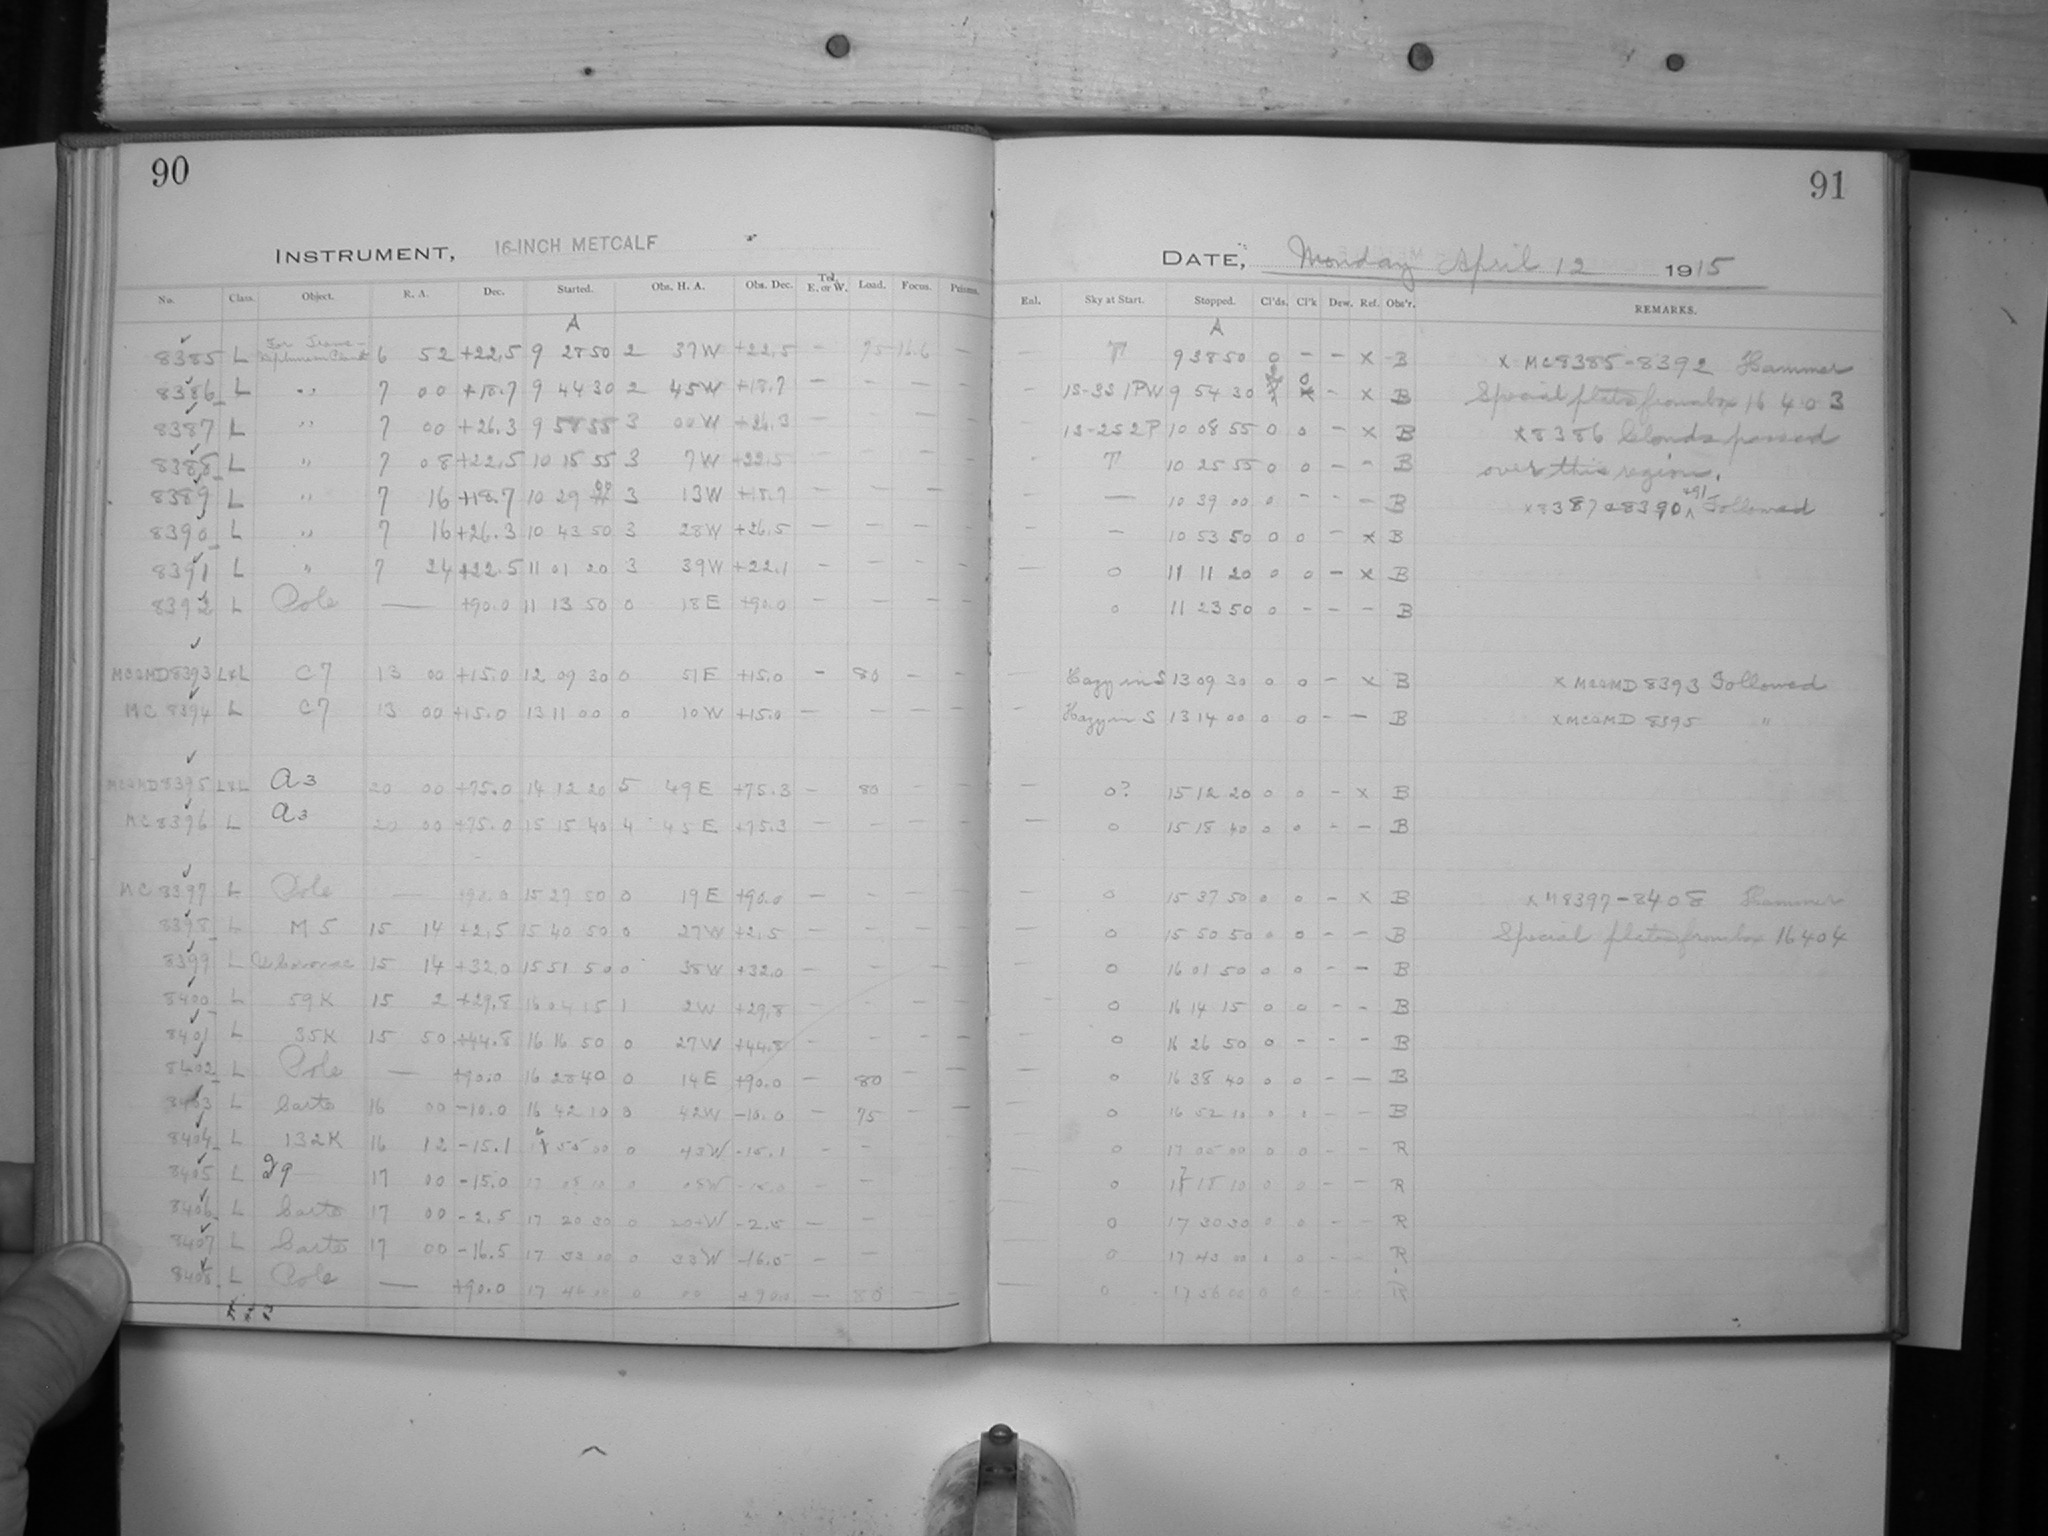 90
INSTRUMENT, 16-INCH METCALF
No. Class. Object. R. A. Dec. Started. Obs. H. A. Obs. Dec. Tel. E. or W. Load. Focus. Prisms.
A
8385 L For Trans- 6 52 +22.5 9 28 50 2 37 W +22.5 – 75 16.6 –
8386 L " 7 00 +18.7 9 44 30 2 45 W +18.7 – – – –
8387 L " 7 00 +26.3 9 58 55 3 00 W +26.3 – – – –
8388 L " 7 08 +22.5 10 15 55 3 7 W +22.5 – – – –
8389 L " 7 16 +18.7 10 29 00 3 13 W +18.7 – – – –
8390 L " 7 16 +26.3 10 43 50 3 28 W +26.5 – – – –
8391 L " 7 24 +22.5 11 01 20 3 39 W +22.1 – – – –
8392 L Pole — +90.0 11 13 50 0 18 E +90.0 – – – –
MC&MD 8393 L&L C7 13 00 +15.0 12 09 30 0 51 E +15.0 – 80 – –
MC 8394 L C7 13 00 +15.0 13 11 00 0 10 W +15.0 – – – –
MC&MD 8395 L&L A3 20 00 +75.0 14 12 20 5 49 E +75.3 – 80 – –
MC 8396 L A3 20 00 +75.0 15 15 40 4 45 E +75.3 – – – –
MC 8397 L Pole — +90.0 15 27 50 0 19 E +90.0 – – – –
8398 L M 5 15 14 +2.5 15 40 50 0 27 W +2.5 – – – –
8399 L Coronae 15 14 +32.0 15 51 50 0 38 W +32.0 – – – –
8400 L 59 K 15 2 +29.8 16 04 15 1 2 W +29.8 – – – –
8401 L 35 K 15 50 +44.8 16 16 50 0 27 W +44.8 – – – –
8402 L Pole — +90.0 16 28 40 0 14 E +90.0 – 80 – –
8403 L Carte 16 00 -10.0 16 42 10 0 42 W -10.0 – 75 – –
8404 L 132 K 16 12 -15.1 16 55 00 0 43 W -15.1 – –
8405 L 29 17 00 -15.0 17 05 10 0 05 W -15.0 – –
8406 L Carte 17 00 -2.5 17 20 30 0 20 W -2.5 – –
8407 L Carte 17 00 -16.5 17 33 00 0 33 W -16.5 – –
8408 L Pole — +90.0 17 46 00 0 00 +90.0 – 80 – –
91
DATE, Monday April 12 1915
Enl. Sky at Start. Stopped. Cl'ds. Cl'k Dew. Ref. Obs'r. REMARKS.
A
– T 9 38 50 0 – – x B x MC 8385–8392 Hammer
– 1S-3S 1PW 9 54 30 0 – x B Special plates from box 16403
– 1S-2S 2P 10 08 55 0 0 – x B x 8386 Clouds passed
– T 10 25 55 0 0 – – B over this region.
— 10 39 00 0 – – – B x 8387 & 8390 +91 Followed
– 10 53 50 0 0 – x B
— 0 11 11 20 0 0 – x B
0 11 23 50 0 – – – B
– Hazy in S 13 09 30 0 0 – x B x MC&MD 8393 Followed
– Hazy in S 13 14 00 0 0 – – B x MC&MD 8395 "
— 0? 15 12 20 0 0 – x B
— 0 15 18 40 0 0 – – B
– 0 15 37 50 0 0 – x B x M 8397–8408 Hammer
– 0 15 50 50 0 0 – – B Special plates from box 16404
– 0 16 01 50 0 0 – – B
– 0 16 14 15 0 0 – – B
– 0 16 26 50 0 – – – B
– 0 16 38 40 0 0 – – B
– 0 16 52 10 0 0 – – B
0 17 05 00 0 0 – – R
– 0 17 15 10 0 0 – – R
– 0 17 30 30 0 0 – – R
– 0 17 43 00 0 0 – – R
— 0 17 56 00 0 0 – – R